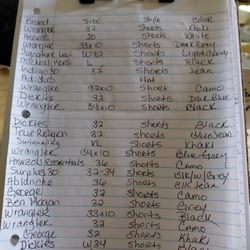 Brand Size Style Color
Wrangler 32 Shorts Khaki
30 Shorts White
Wrangler 33x10 Shorts Dark Grey
32 Shorts Light
L Shorts Black
30 32 Shorts Jean
Adidas Hat
Wrangler 32 Shorts Camo
Dickies 32 Shorts Dark Blue
Wrangler 34x10 Shorts Black
Dickies 32 Shorts Black
True Religion 32 Shorts Blue Jean
XL Shorts Khaki
Wrangler 34x10 Shorts Blue Grey
Amazon Essentials 36 Shorts Camo
32-34 Shorts Blk/Grey
36 Shorts Blk Jean
George 32 Shorts Camo
Ben Hogan 32 Shorts Grey
Wrangler 33x10 Shorts Black
Wrangler 32 Shorts Camo
George 32 Shorts Khaki
Dickies W34 Shorts Black